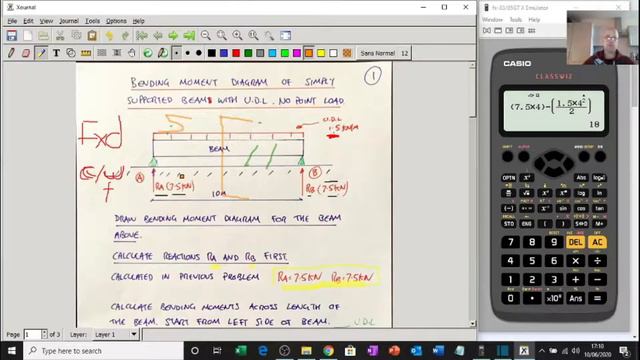 Xournal
fx-83/85GT X Emulator
File Edit View Journal Tools Options Help
Mode Edit Window Help
Sans Normal 12
CASIO
CLASSWIZ
(7.5×4)-(1.5×4²/2)
18
BENDING MOMENT DIAGRAM OF SIMPLY
SUPPORTED BEAMS WITH U.D.L. NO POINT LOAD
1
Fxd
5
U.D.L
1.5KN/M
BEAM
A
RA (7.5KN)
RB (7.5KN)
B
10M
f
DRAW BENDING MOMENT DIAGRAM FOR THE BEAM
ABOVE.
CALCULATE REACTIONS RA AND RB FIRST.
CALCULATED IN PREVIOUS PROBLEM RA=7.5KN RB=7.5KN
CALCULATE BENDING MOMENTS ACROSS LENGTH OF
THE BEAM. START FROM LEFT SIDE OF BEAM. U.D.L
OPTN
7 8 9 DEL AC
4 5 6 × ÷
1 2 3 + −
0 . ×10ˣ Ans =
Page 1 of 3
Layer
Type here to search
17:10
10/06/2020